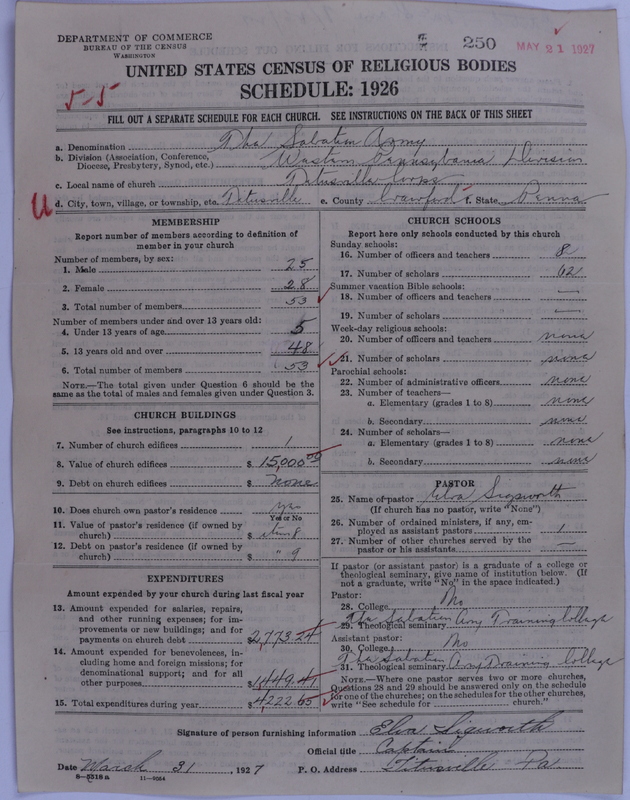 DEPARTMENT OF COMMERCE
BUREAU OF THE CENSUS
WASHINGTON
250
MAY 21 1927
UNITED STATES CENSUS OF RELIGIOUS BODIES
SCHEDULE: 1926
5-5
FILL OUT A SEPARATE SCHEDULE FOR EACH CHURCH. SEE INSTRUCTIONS ON THE BACK OF THIS SHEET
a. Denomination The Salvation Army
b. Division (Association, Conference, Diocese, Presbytery, Synod, etc.) Western Pennsylvania Division
c. Local name of church Titusville Corps
U d. City, town, village, or township, etc. Titusville e. County Crawford f. State Penna
MEMBERSHIP
Report number of members according to definition of
member in your church
Number of members, by sex:
1. Male 25
2. Female 28
3. Total number of members 53
Number of members under and over 13 years old:
4. Under 13 years of age 5
5. 13 years old and over 48
6. Total number of members 53
NOTE.—The total given under Question 6 should be
same as the total of males and females given under Question 3.
CHURCH BUILDINGS
See instructions, paragraphs 10 to 12
7. Number of church edifices 1
8. Value of church edifices $ 15,000.00
9. Debt on church edifices $ none
10. Does church own pastor's residence yes
Yes or No
11. Value of pastor's residence (if owned by
church) $ item 8
12. Debt on pastor's residence (if owned by
church) $ " 9
EXPENDITURES
Amount expended by your church during last fiscal year
13. Amount expended for salaries, repairs,
and other running expenses; for im-
provements or new buildings; and for
payments on church debt $ 2,773.24
14. Amount expended for benevolences, in-
cluding home and foreign missions; for
denominational support; and for all
other purposes $ 1,449.41
15. Total expenditures during year $ 4222.65
CHURCH SCHOOLS
Report here only schools conducted by this church
Sunday schools:
16. Number of officers and teachers 8
17. Number of scholars 62
Summer vacation Bible schools:
18. Number of officers and teachers —
19. Number of scholars —
Week-day religious schools:
20. Number of officers and teachers none
21. Number of scholars none
Parochial schools:
22. Number of administrative officers none
23. Number of teachers—
a. Elementary (grades 1 to 8) none
b. Secondary none
24. Number of scholars—
a. Elementary (grades 1 to 8) none
b. Secondary none
PASTOR
25. Name of pastor Elva Sigworth
(If church has no pastor, write "None")
26. Number of ordained ministers, if any, em-
ployed as assistant pastors 1
27. Number of other churches served by the
pastor or his assistants —
If pastor (or assistant pastor) is a graduate of a college or
theological seminary, give name of institution below. (If
not a graduate, write "No" in the space indicated.)
Pastor:
28. College No
29. Theological seminary The Salvation Army Training College
Assistant pastor:
30. College No
31. Theological seminary The Salvation Army Training College
NOTE.—Where one pastor serves two or more churches,
Questions 28 and 29 should be answered only on the schedule
for one of the churches; on the schedules for the other churches,
write "See schedule for church."
Signature of person furnishing information Elva Sigworth
Official title Captain
Date March 31, 1927 P. O. Address Titusville Pa
8—5518 a 11—9064